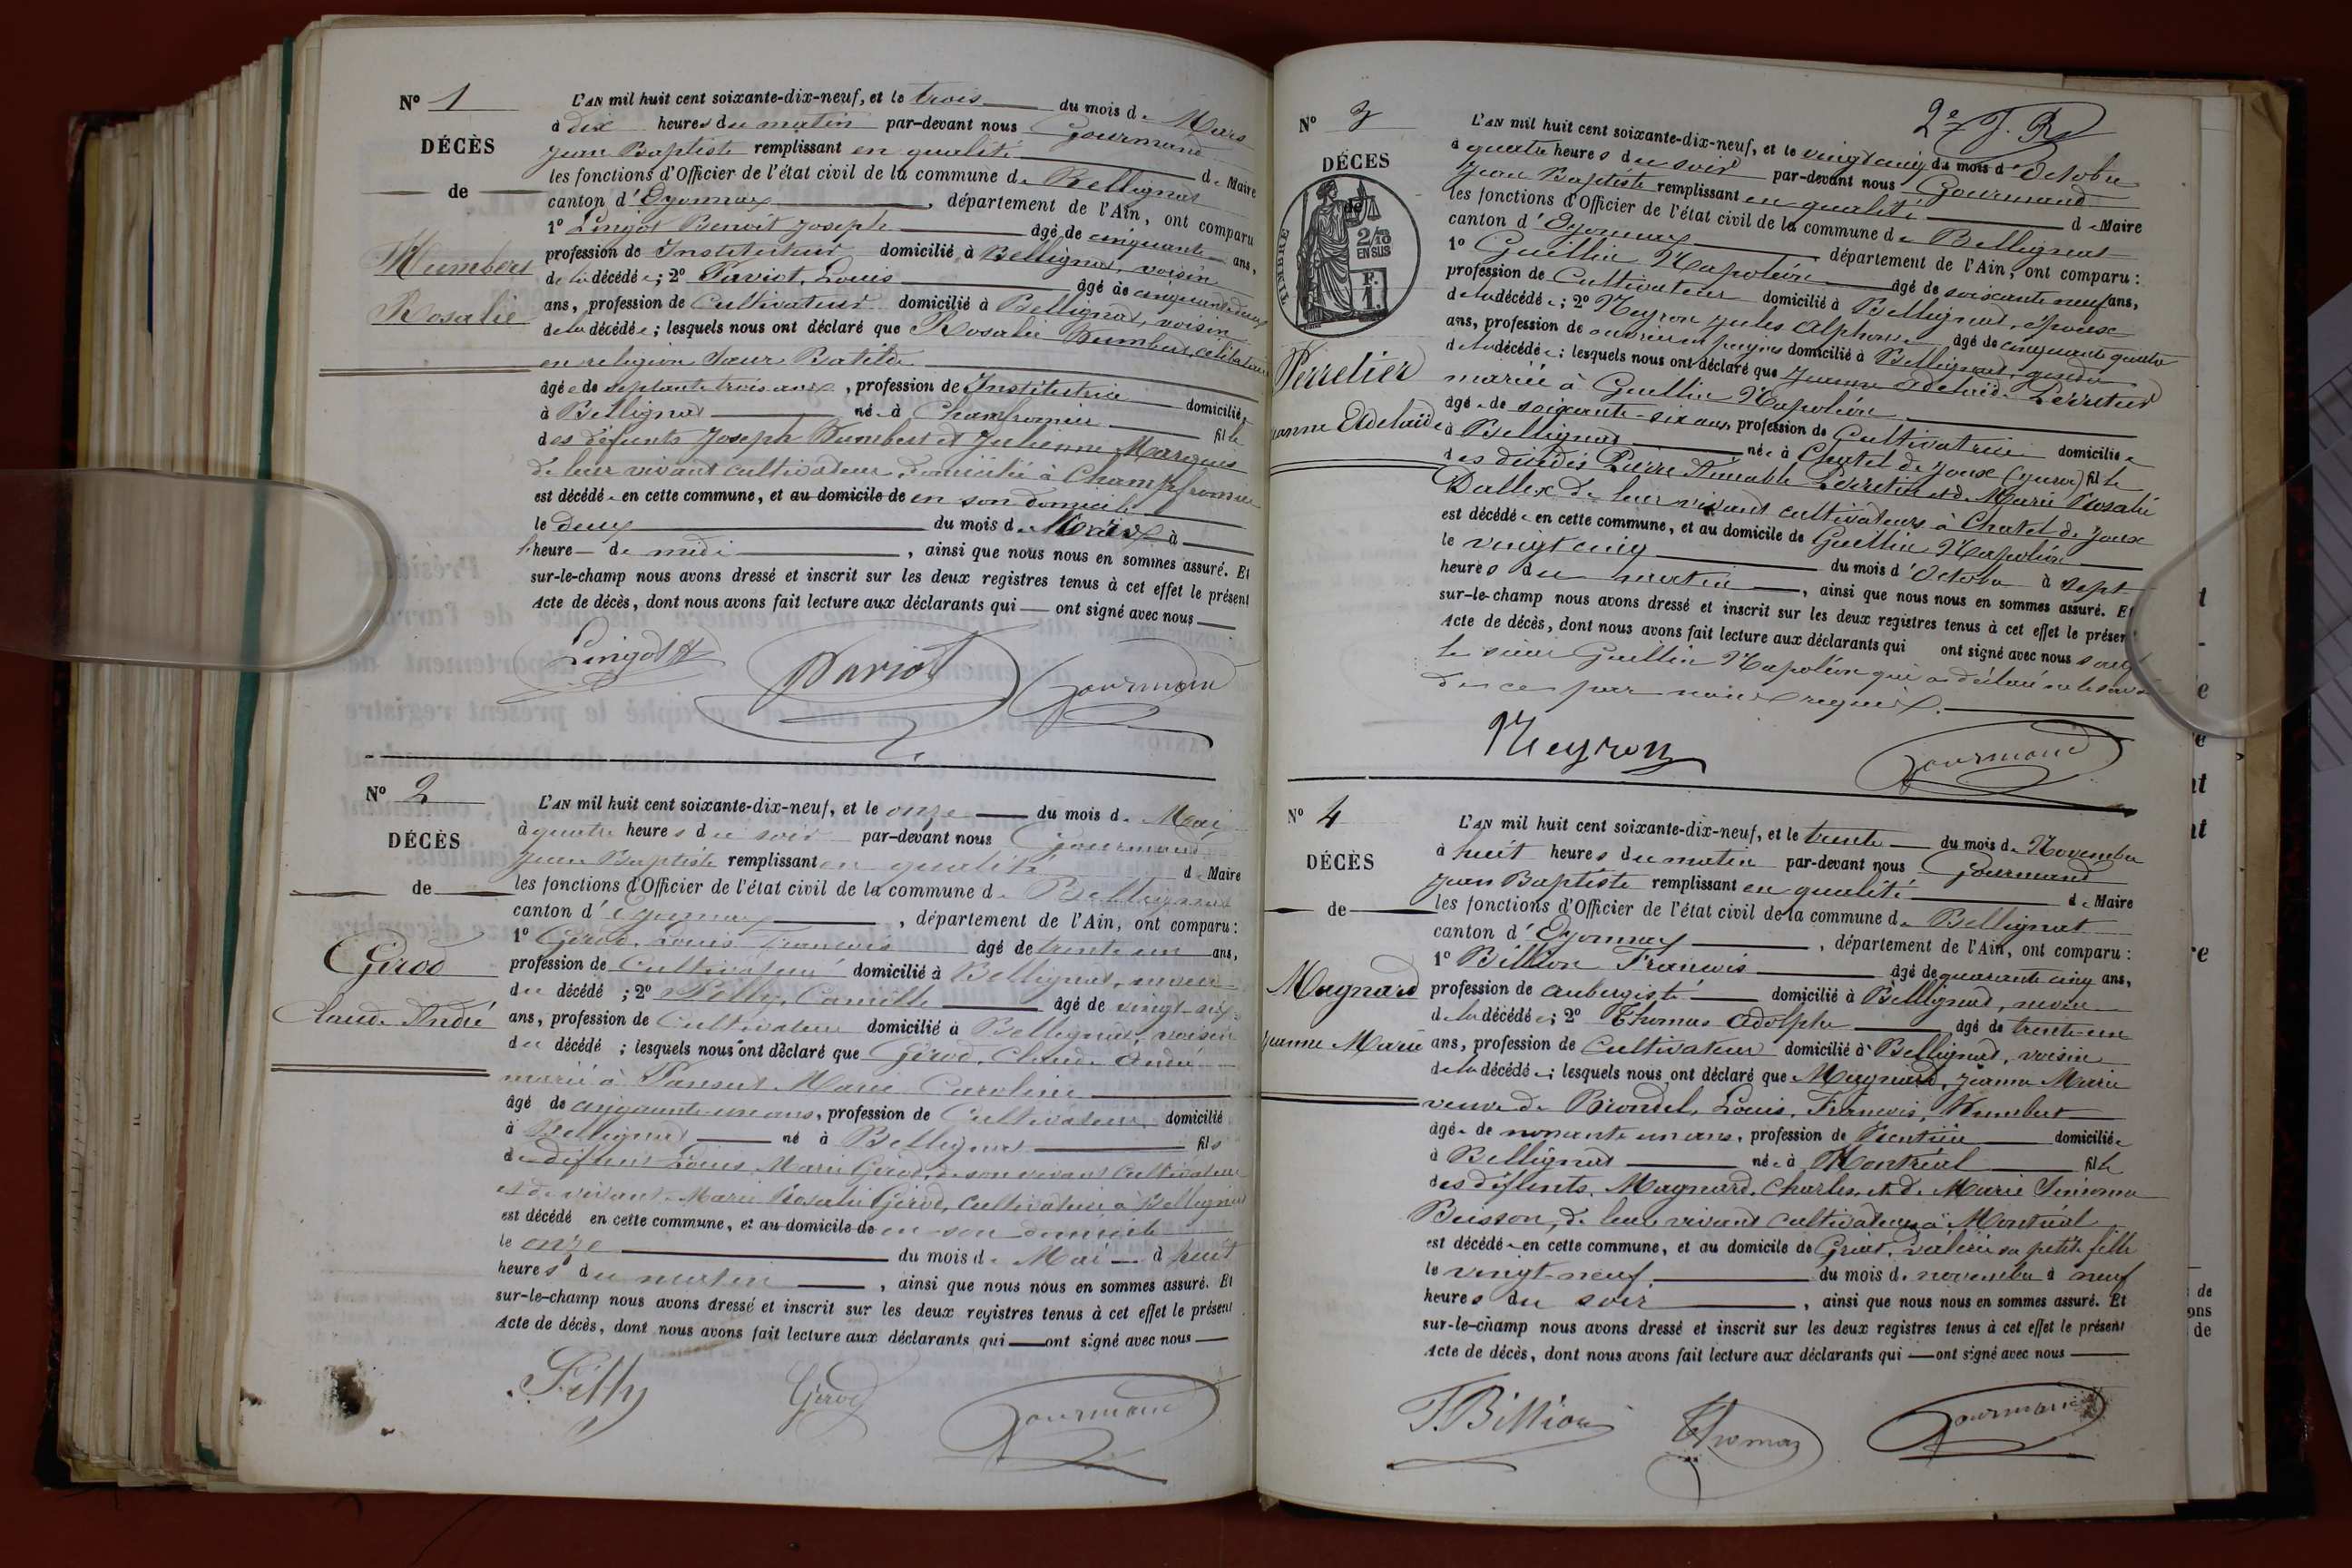 Nº 1
DÉCÈS
de
Humbert
Rosalie
L'AN mil huit cent soixante-dix-neuf, et le trois du mois de Mars
à dix heures du matin par-devant nous Gourmand
Jean Baptiste remplissant en qualité de Maire
les fonctions d'Officier de l'état civil de la commune de Bellignat
canton d'Oyonnax, département de l'Ain, ont comparu
1º Lingot Benoit Joseph âgé de cinquante ans,
profession de Instituteur domicilié à Bellignat, voisin
de la décédée; 2º Pariot, Louis âgé de cinquante deux
ans, profession de Cultivateur domicilié à Bellignat, voisin
de la décédée; lesquels nous ont déclaré que Rosalie Humbert, célibataire
en religion Sœur Batilde
âgée de septante trois ans, profession de Institutrice domiciliée
à Bellignat née à Champfromier fille
des défunts Joseph Humbert et Julienne Marquis
de leur vivant cultivateur domicilié à Champfromier
est décédée en cette commune, et au domicile de en son domicile
le deux du mois de Mars à
l'heure de midi, ainsi que nous nous en sommes assuré. Et
sur-le-champ nous avons dressé et inscrit sur les deux registres tenus à cet effet le présent
Acte de décès, dont nous avons fait lecture aux déclarants qui ont signé avec nous
Lingot
Pariot
Gourmand
Nº 2
DÉCÈS
de
Girod
Claude André
L'AN mil huit cent soixante-dix-neuf, et le onze du mois de Mai
à quatre heures du soir par-devant nous Gourmand
Jean Baptiste remplissant en qualité de Maire
les fonctions d'Officier de l'état civil de la commune de Bellignat
canton d'Oyonnax, département de l'Ain, ont comparu :
1º Girod, Louis François âgé de trente un ans,
profession de Cultivateur domicilié à Bellignat, neveu
du décédé ; 2º Pilly, Camille âgé de vingt-six
ans, profession de Cultivateur domicilié à Bellignat, voisin
du décédé ; lesquels nous ont déclaré que Girod, Claude André
marié à Pansut Marie Caroline
âgé de cinquante un ans, profession de Cultivateur domicilié
à Bellignat né à Bellignat fils
de défunt Louis Marie Girod, de son vivant Cultivateur
et de vivante Marie Rosalie Girod, Cultivatrice à Bellignat
est décédé en cette commune, et au domicile de en son domicile
le onze du mois de Mai à huit
heures du matin, ainsi que nous nous en sommes assuré. Et
sur-le-champ nous avons dressé et inscrit sur les deux registres tenus à cet effet le présent
Acte de décès, dont nous avons fait lecture aux déclarants qui ont signé avec nous
Pilly
Girod
Gourmand
2e
Nº 3
DÉCÈS
de
TIMBRE
2/10
EN SUS
F.
1.
Perretier
Jeanne Adelaïde
L'AN mil huit cent soixante-dix-neuf, et le vingt cinq du mois d'Octobre
à quatre heures du soir par-devant nous Gourmand
Jean Baptiste remplissant en qualité de Maire
les fonctions d'Officier de l'état civil de la commune de Bellignat
canton d'Oyonnax département de l'Ain, ont comparu :
1º Guillin Napoléon âgé de soixante neuf ans,
profession de Cultivateur domicilié à Bellignat, époux
de la décédée; 2º Neyron Jules Alphonse âgé de cinquante quatre
ans, profession de ouvrier en peignes domicilié à Bellignat, gendre
de la décédée; lesquels nous ont déclaré que Jeanne Adelaïde Perretier
mariée à Guillin Napoléon
âgée de soixante-six ans, profession de Cultivatrice domiciliée
à Bellignat née à Chatel de Joux (Jura) fille
des décédés Pierre Aimable Perretier et de Marie Rosalie
Dallex de leur vivant cultivateurs à Chatel de Joux
est décédée en cette commune, et au domicile de Guillin Napoléon
le vingt cinq du mois d'Octobre à sept
heures du matin, ainsi que nous nous en sommes assuré. Et
sur-le-champ nous avons dressé et inscrit sur les deux registres tenus à cet effet le présent
Acte de décès, dont nous avons fait lecture aux déclarants qui ont signé avec nous sauf
le sieur Guillin Napoléon qui a déclaré ne le savoir
de ce par nous requis.
Neyron
Gourmand
Nº 4
DÉCÈS
de
Magnard
Jeanne Marie
L'AN mil huit cent soixante-dix-neuf, et le trente du mois de Novembre
à huit heures du matin par-devant nous Gourmand
Jean Baptiste remplissant en qualité de Maire
les fonctions d'Officier de l'état civil de la commune de Bellignat
canton d'Oyonnax, département de l'Ain, ont comparu :
1º Billion François âgé de quarante cinq ans,
profession de aubergiste domicilié à Bellignat, neveu
de la décédée; 2º Thomas Adolphe âgé de trente-un
ans, profession de Cultivateur domicilié à Bellignat, voisin
de la décédée; lesquels nous ont déclaré que Magnard, Jeanne Marie
veuve de Blondel, Louis, François, Humbert
âgée de nonante un ans, profession de Rentière domiciliée
à Bellignat née à Montréal fille
des défunts Magnard, Charles et de Marie
Buisson, de leur vivant cultivateurs à Montréal
est décédée en cette commune, et au domicile de Griot, Valérie sa petite fille
le vingt-neuf du mois de novembre à neuf
heures du soir, ainsi que nous nous en sommes assuré. Et
sur-le-champ nous avons dressé et inscrit sur les deux registres tenus à cet effet le présent
Acte de décès, dont nous avons fait lecture aux déclarants qui ont signé avec nous
F. Billion
Thomas
Gourmand